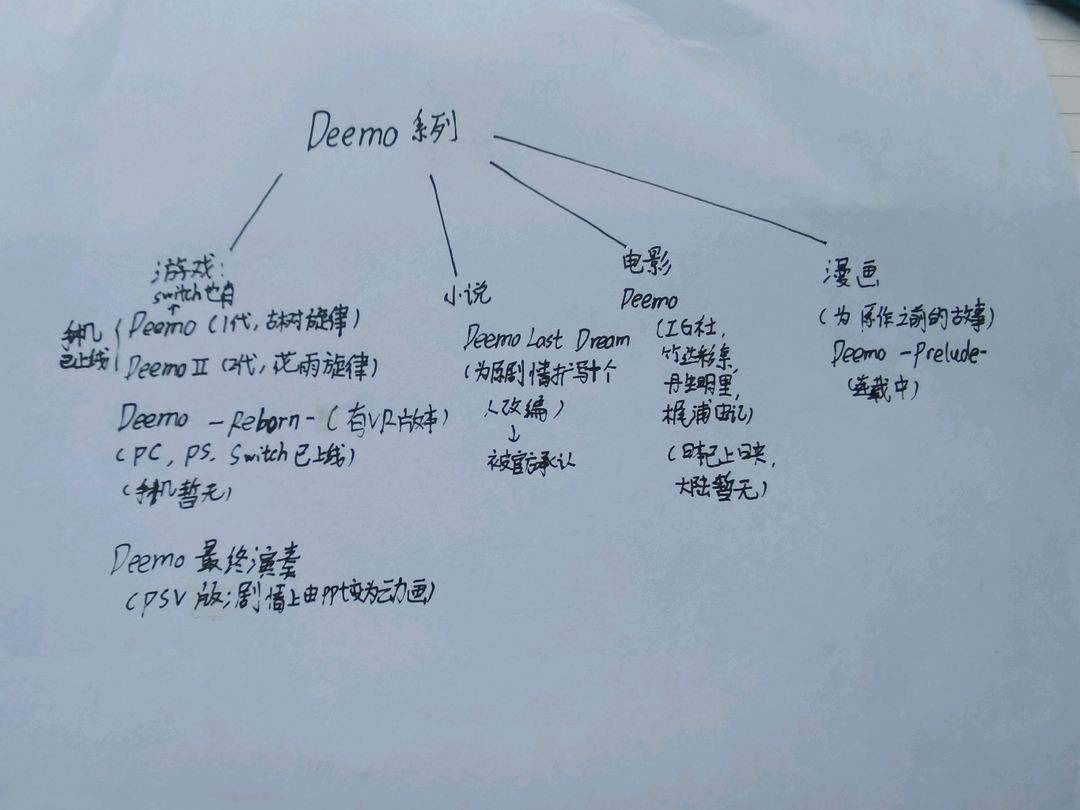 Deemo 系列
游戏:
switch也有
↑
手机
已上线
Deemo (1代, 古树旋律)
Deemo II (2代, 花雨旋律)
Deemo -Reborn- (有VR版本)
(PC, PS, Switch已上线)
(手机暂无)
Deemo 最终演奏
(PSV 版;剧情上由ppt变为动画)
小说
Deemo Last Dream
(为原剧情扩写+个
人改编)
↓
被官方承认
电影
Deemo
(IG社,
竹达彩奈,
丹生明里,
梶浦由记)
(日本已上映,
大陆暂无)
漫画
(为原作之前的故事)
Deemo -Prelude-
(连载中)